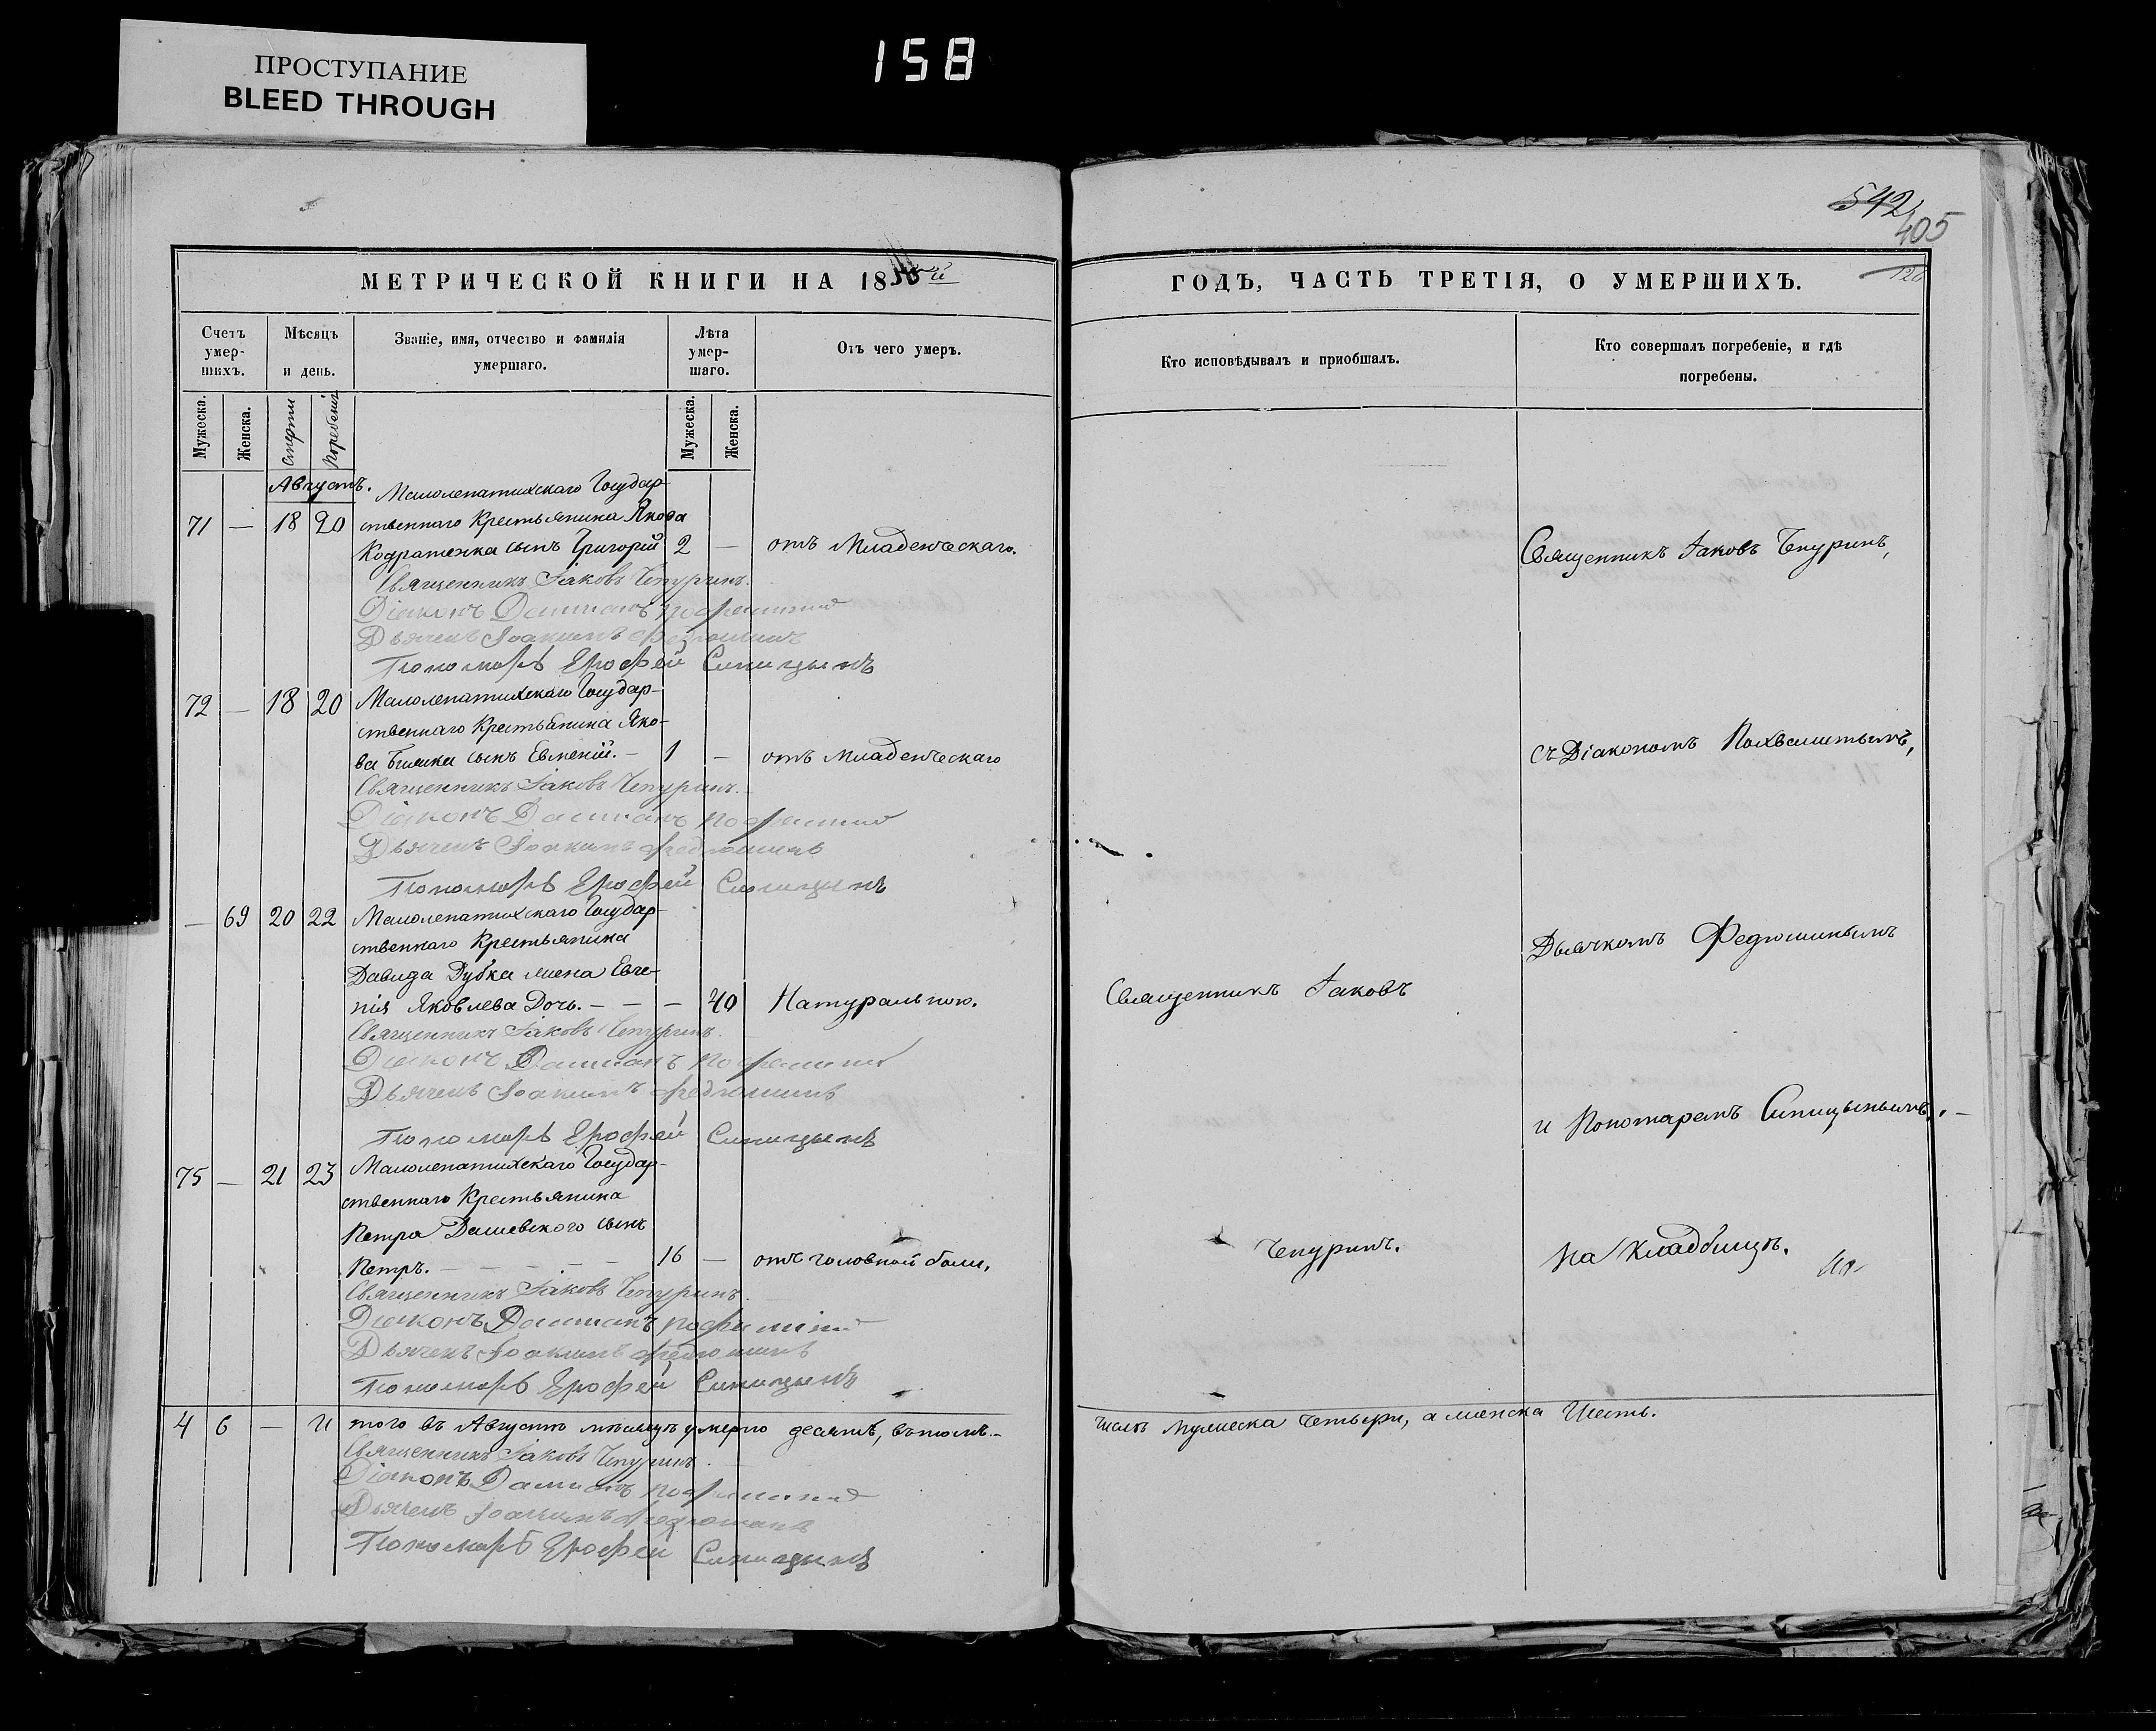 ПРОСТУПАНИЕ
BLEED THROUGH
158
542
405
МЕТРИЧЕСКОЙ КНИГИ НА 18
ГОДЪ, ЧАСТЬ ТРЕТІЯ, О УМЕРШИХЪ.
Счетъ умер-шихъ.
Мѣсяцъ и день.
Званіе, имя, отчество и фамилія умершаго.
Лѣта умер-шаго.
Отъ чего умеръ.
Кто исповѣдывалъ и пріобщалъ.
Кто совершалъ погребеніе, и гдѣ погребены.
Мужеска.
Женска.
Смерти
Погребенія
Мужеска.
Женска.
Августъ.
Малолепатихскаго Государ-
71 — 18 20 ственнаго Крестьянина Якова
Кодратенка сынъ Григорій 2 — отъ Младенческаго.
Священникъ Іаковъ Чепуринъ,
Священникъ Іаковъ Чепуринъ.
Діаконъ Даміанъ
Дьячекъ Іоакимъ Федюшинъ
Пономарь Ерофей Синицынъ
72 — 18 20 Малолепатихскаго Государ-
ственнаго Крестьянина Яко-
ва сынъ Евменій. — 1 — отъ Младенческаго
съ Діакономъ Похвалитымъ,
Священникъ Іаковъ Чепуринъ.
Діаконъ Даміанъ
Дьячекъ Іоакимъ Федюшинъ
Пономарь Ерофей Синицынъ
— 69 20 22 Малолепатихскаго Государ-
ственнаго Крестьянина
Дьячкомъ Федюшинымъ
Давида Дубка жена Евге-
нія Яковлева Дочь. — — — 40 Натуральною.
Священникъ Іаковъ
Священникъ Іаковъ Чепуринъ.
Діаконъ Даміанъ
Дьячекъ Іоакимъ Федюшинъ
и Пономаремъ Синицынымъ. —
Пономарь Ерофей Синицынъ
75 — 21 23 Малолепатихскаго Государ-
ственнаго Крестьянина
Петра Дашевского сынъ
Петръ. — — — — — 16 — отъ головной боли.
Чепуринъ.
на кладбищѣ.
Священникъ Іаковъ Чепуринъ.
Діаконъ Даміанъ
Дьячекъ Іоакимъ Федюшинъ
Пономарь Ерофей Синицынъ
4 6 — И того въ Августѣ мѣсяцѣ умерло десять, въ томъ-
числѣ мужеска четыри, а женска Шесть.
Священникъ Іаковъ Чепуринъ.
Діаконъ Даміанъ
Дьячекъ Іоакимъ Федюшинъ
Пономарь Ерофей Синицынъ